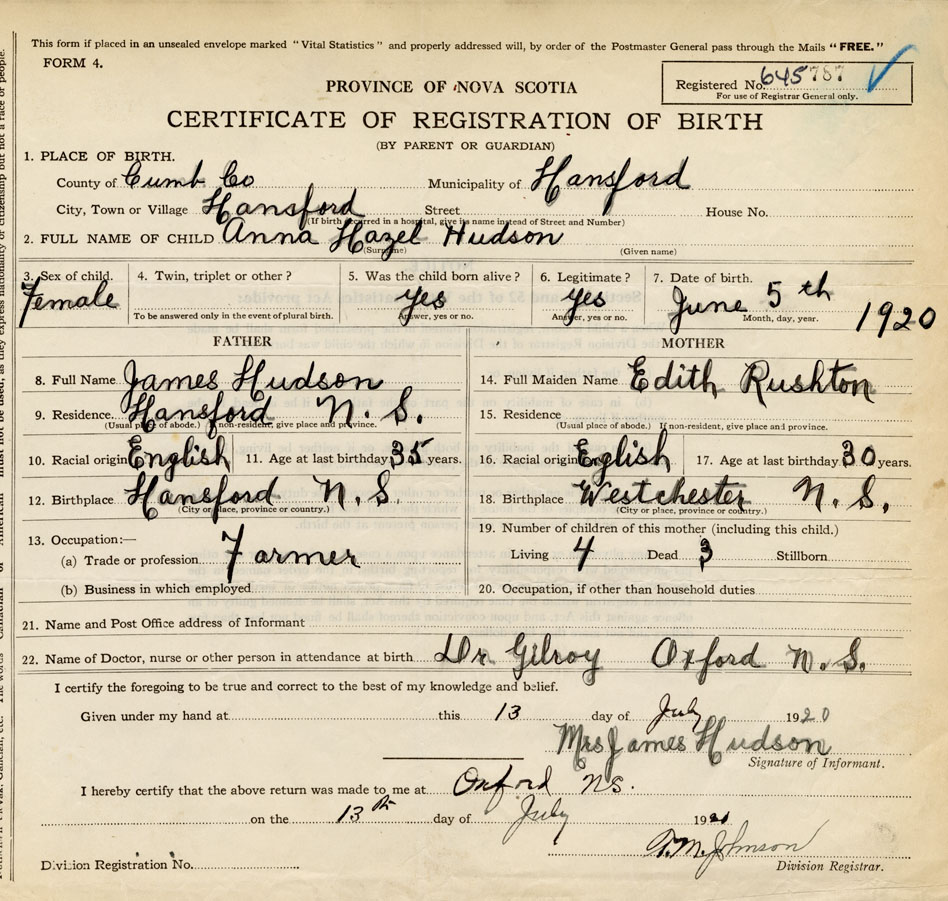 This form if placed in an unsealed envelope marked "Vital Statistics" and properly addressed will, by order of the Postmaster General pass through the Mails "FREE."
FORM 4.
PROVINCE OF NOVA SCOTIA
Registered No. 645787
For use of Registrar General only.
CERTIFICATE OF REGISTRATION OF BIRTH
(BY PARENT OR GUARDIAN)
1. PLACE OF BIRTH.
County of Cumb Co Municipality of Hansford
City, Town or Village Hansford Street House No.
(If birth occurred in a hospital, give its name instead of Street and Number)
2. FULL NAME OF CHILD Anna Hazel Hudson
(Surname) (Given name)
3. Sex of child. 4. Twin, triplet or other? 5. Was the child born alive? 6. Legitimate? 7. Date of birth.
Female Yes Yes June 5th 1920
To be answered only in the event of plural birth. Answer, yes or no. Answer, yes or no. Month, day, year.
FATHER MOTHER
8. Full Name James Hudson 14. Full Maiden Name Edith Rushton
9. Residence. Hansford N. S. 15. Residence
(Usual place of abode.) If non-resident, give place and province. (Usual place of abode.) If non-resident, give place and province.
10. Racial origin English 11. Age at last birthday 35 years. 16. Racial origin Eglish 17. Age at last birthday 30 years.
12. Birthplace Hansford N. S. 18. Birthplace Westchester N. S.
(City or place, province or country.) (City or place, province or country.)
13. Occupation:— 19. Number of children of this mother (including this child.)
(a) Trade or profession Farmer Living 4 Dead 3 Stillborn
(b) Business in which employed 20. Occupation, if other than household duties
21. Name and Post Office address of Informant
22. Name of Doctor, nurse or other person in attendance at birth Dr Gilroy Oxford N. S.
I certify the foregoing to be true and correct to the best of my knowledge and belief.
Given under my hand at this 13 day of July 1920
Mrs James Hudson
Signature of Informant.
I hereby certify that the above return was made to me at Oxford NS.
on the 13th day of July 19
T. M. Johnson
Division Registration No. Division Registrar.